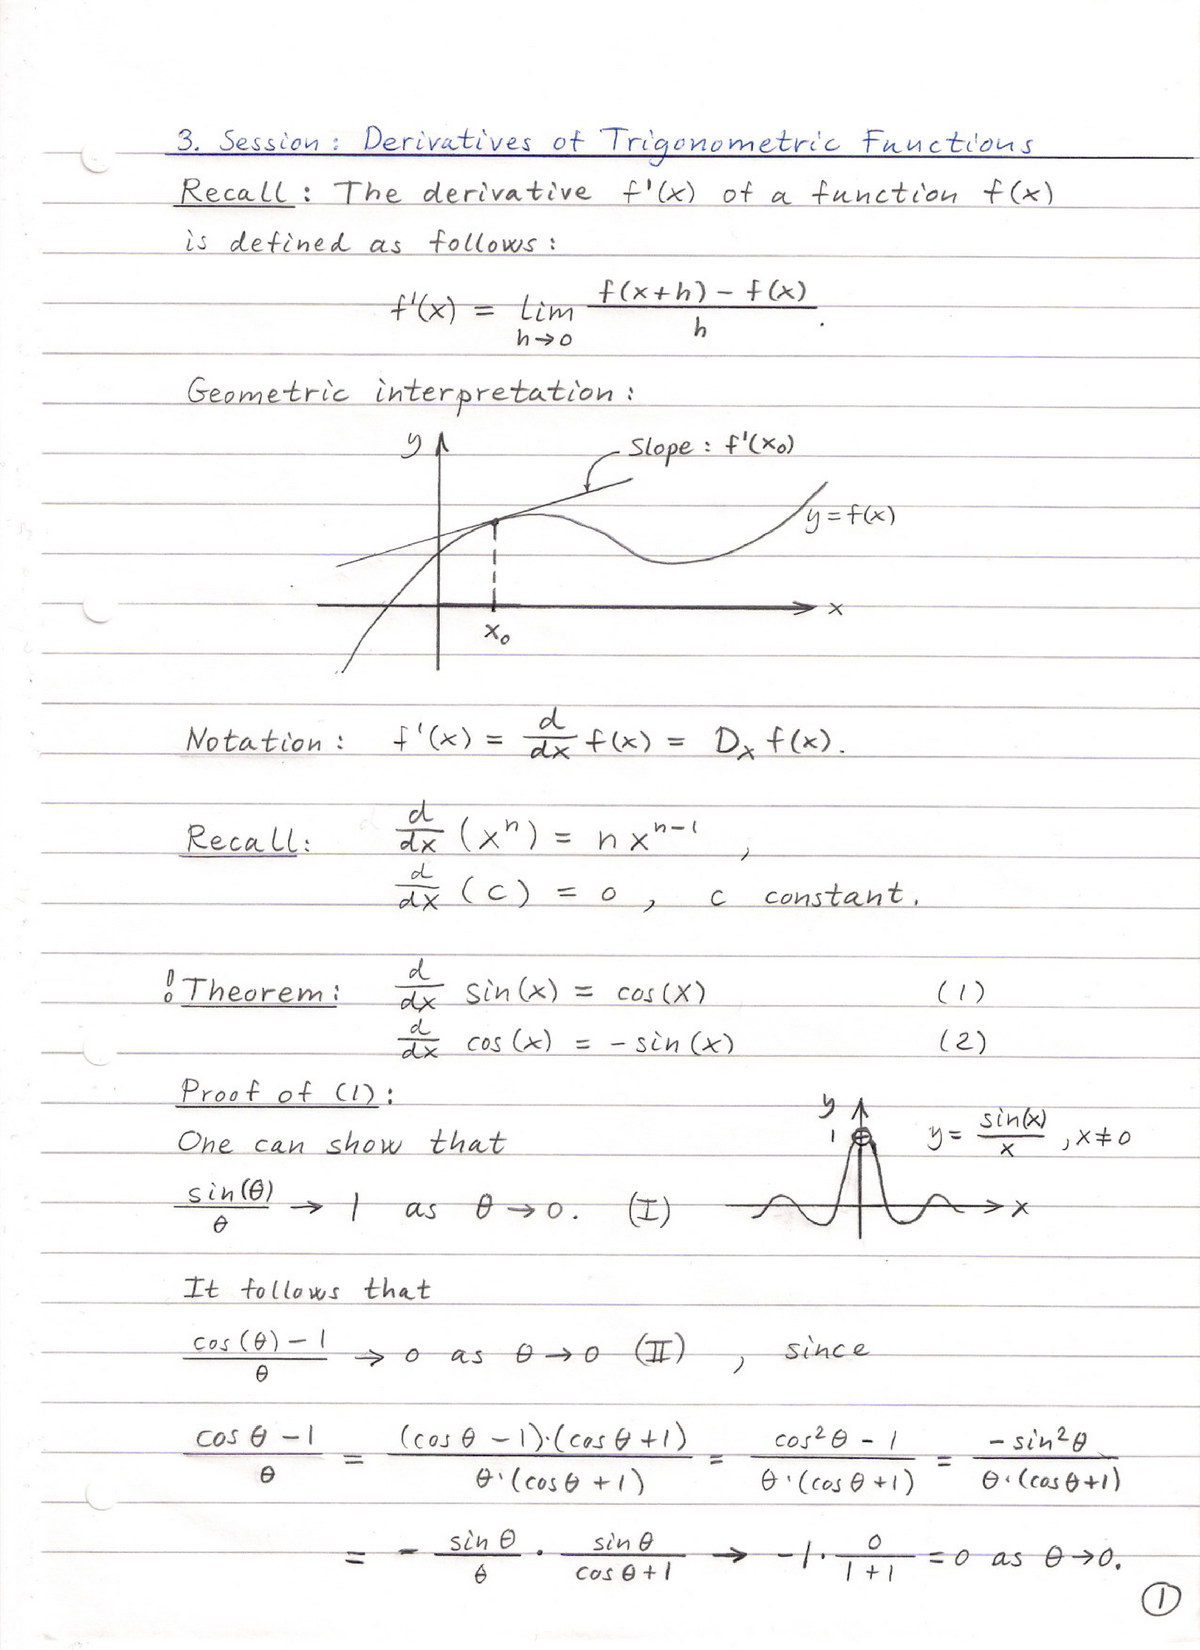 3. Session: Derivatives of Trigonometric Functions
Recall: The derivative f'(x) of a function f(x)
is defined as follows:
f'(x) = lim h→0 (f(x+h) - f(x)) / h .
Geometric interpretation:
y
Slope: f'(x₀)
y = f(x)
x
x₀
Notation: f'(x) = d/dx f(x) = Dₓ f(x).
Recall: d/dx (xⁿ) = n xⁿ⁻¹ ,
d/dx (c) = 0 , c constant.
! Theorem: d/dx sin(x) = cos(x) (1)
d/dx cos(x) = - sin(x) (2)
Proof of (1):
y
1
y = sin(x)/x , x ≠ 0
x
One can show that
sin(θ)/θ → 1 as θ → 0. (I)
It follows that
(cos(θ) - 1)/θ → 0 as θ → 0 (II) , since
(cos θ - 1)/θ = ((cos θ - 1)·(cos θ + 1))/(θ·(cos θ + 1)) = (cos²θ - 1)/(θ·(cos θ + 1)) = (- sin²θ)/(θ·(cos θ + 1))
= - sin θ/θ · sin θ/(cos θ + 1) → -1 · 0/(1+1) = 0 as θ → 0.
1